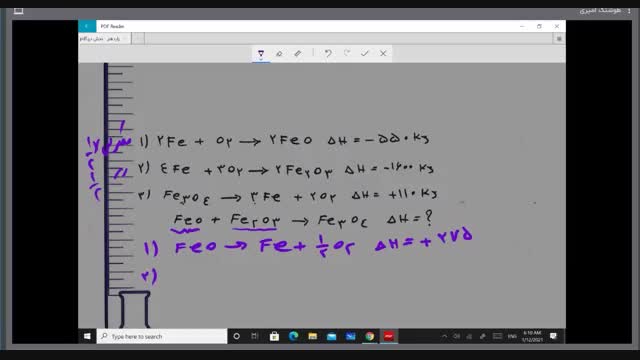 هوشنگ امیری
PDF Reader
۱) ۲Fe + O۲ → ۲FeO ΔH = -۵۵۰ KJ
۲) ۴Fe + ۳O۲ → ۲Fe۲O۳ ΔH = -۱۶۰۰ KJ
۳) Fe۳O۴ → ۳Fe + ۲O۲ ΔH = +۱۱۰ KJ
FeO + Fe۲O۳ → Fe۳O۴ ΔH = ?
۱) FeO → Fe + ۱/۲ O۲ ΔH = + ۲۷۵
۲)
Type here to search
ENG
6:10 AM
1/12/2021